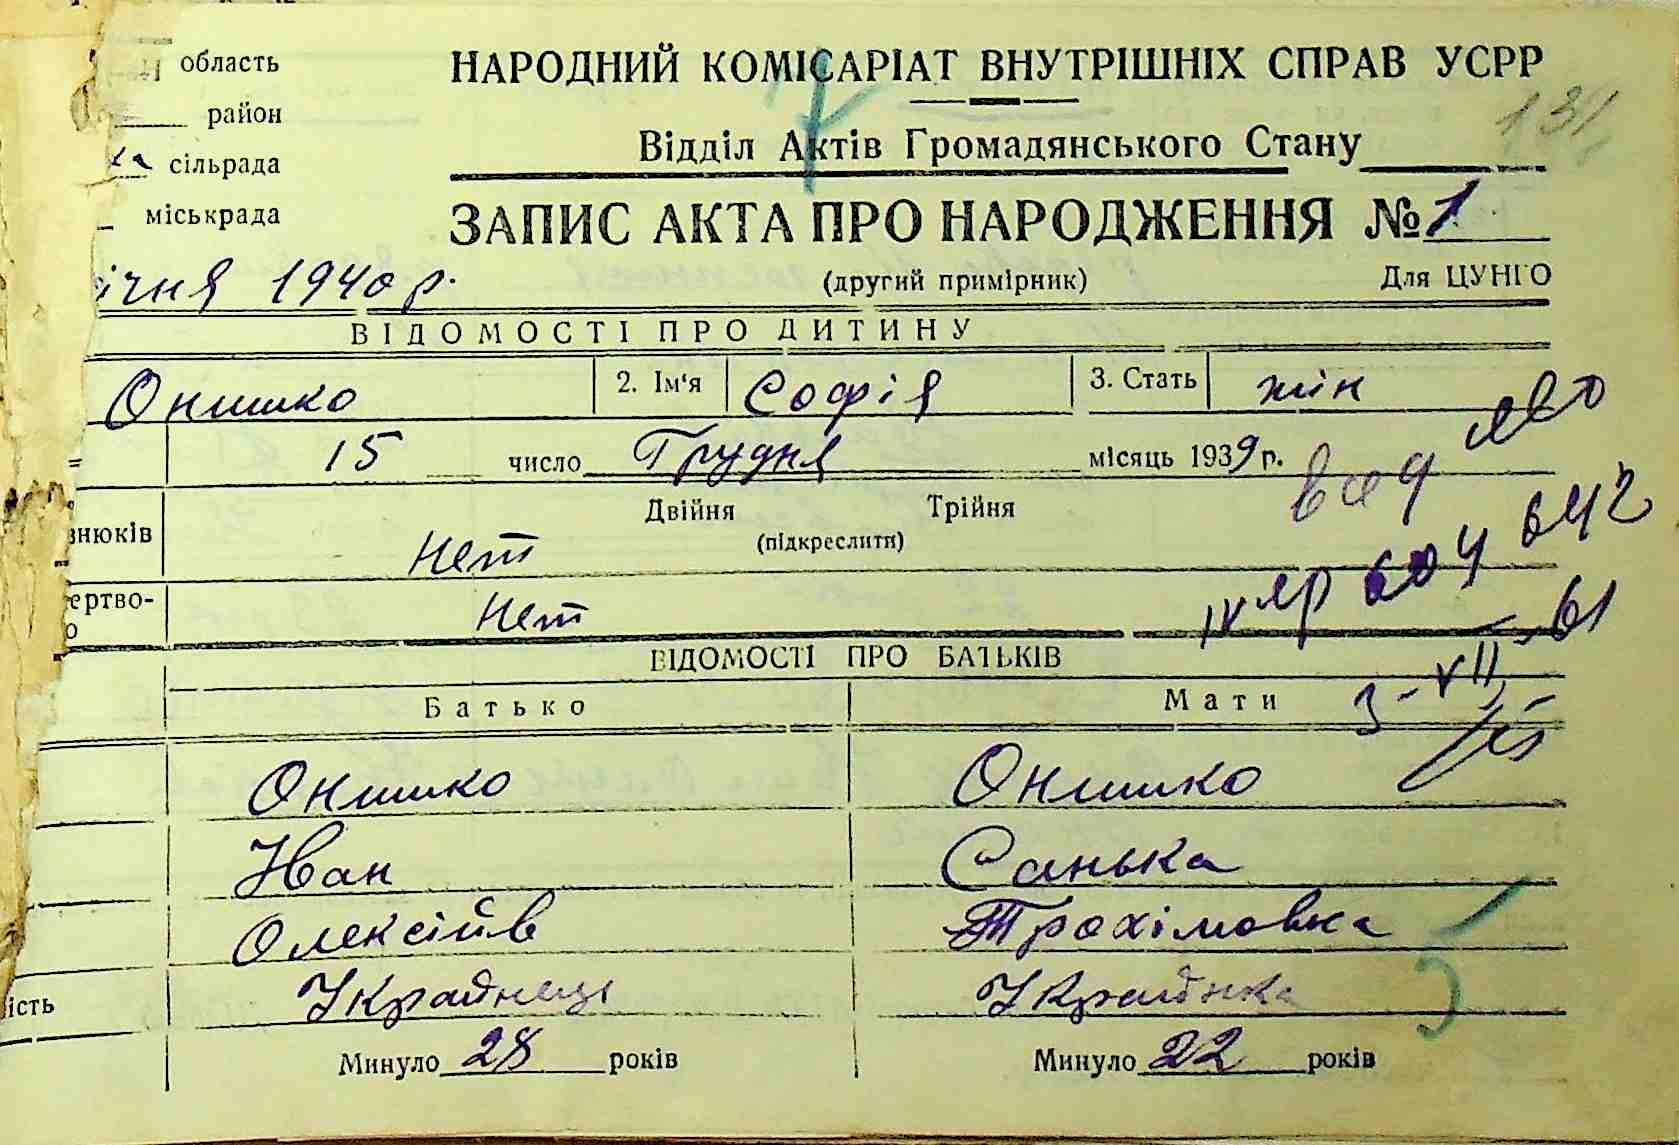 область
район
сільрада
міськрада
НАРОДНИЙ КОМІСАРІАТ ВНУТРІШНІХ СПРАВ УСРР
131
Відділ Актів Громадянського Стану
ЗАПИС АКТА ПРО НАРОДЖЕННЯ № 1
(другий примірник) Для ЦУНГО
ічня 1940 р.
ВІДОМОСТІ ПРО ДИТИНУ
Онишко 2. Ім'я Софія 3. Стать жін
15 число Грудня місяць 1939 р.
Двійня Трійня
(підкреслити)
знюків Нет
ертво-
о Нет
ВІДОМОСТІ ПРО БАТЬКІВ
Батько Мати
3-VII-61
Онишко Онишко
Иван Санька
Олексійв Трохімовка
ість Украйнець Украінка
Минуло 28 років Минуло 22 років